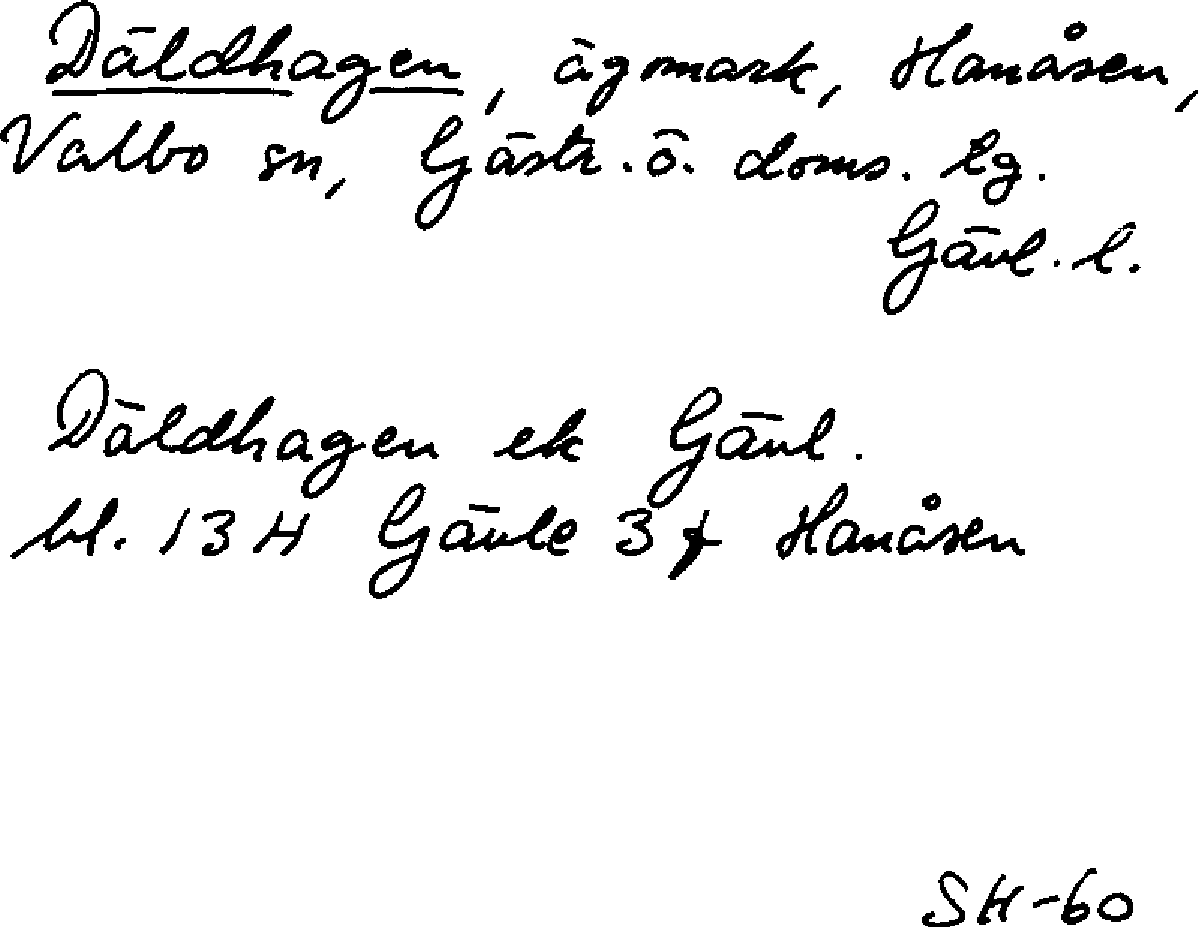 Däldhagen, ägomark, Hanåsen,
Valbo sn, Gästr. ö. doms. lg.
Gävl. l.
Däldhagen ek Gävl.
bl. 13 H Gävle 3 f Hanåsen
SH-60